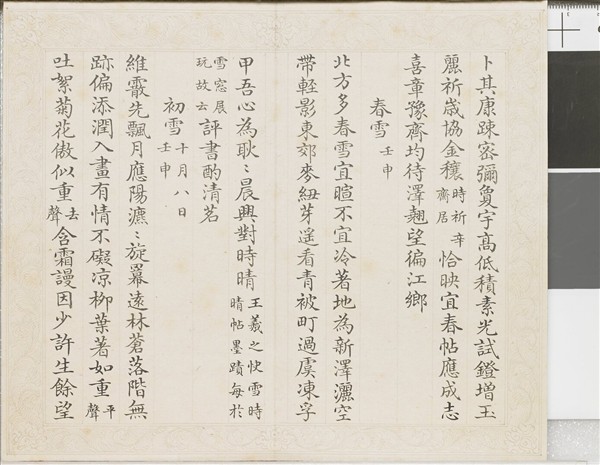 卜其康踈密彌夐宇髙低積素光試鐙增玉
麗祈歲協金穰時祈辛齋居恰映宜春帖應成志
喜章豫齊均待澤翹望徧江鄉
春雪壬申
北方多春雪宜暄不宜冷著地為新澤灑空
帶輕影東郊麥紐芽遙看青被町過虞凍孚
甲吾心為耿〻晨興對時晴王羲之快雪時晴帖墨蹟每於
雪窓展玩故云評書酌清茗
初雪十月八日壬申
維霰先飄月應陽瀌〻旋羃遠林蒼落階無
跡偏添潤入畫有情不礙凉柳葉著如重平聲
吐絮菊花傲似重去聲含霜謾因少許生餘望